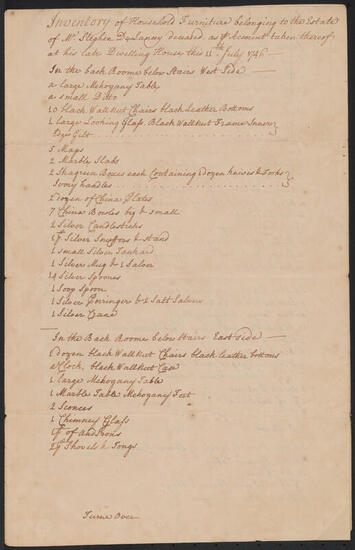 Inventory of Household Furniture belonging to the Estate
of Mr. Stephen DeLancy deceased as ⅌ Account taken thereof
at his late Dwelling House, this 11th July 1746
In the back Roome below Stairs West Side
a large Mahogany Table
a small Ditto
10 black Wallnut Chairs black Leather Bottoms
1 Large Looking Glass, Black Wallnut Frame Inner
Edge Gilt
5 Maps
2 Marble Slabs
2 Shagreen Boxes each Containing 1 dozen knives & Forks
Ivory handles
2 dozen of China Plates
7 China Bowles big & small
2 Silver Candlesticks
1 pr Silver Snuffers & Stand
1 small Silver Tankard
1 Silver Mug & 1 Salver
14 Silver Spoones
1 Soop Spoon
1 Silver Porringer & 2 Salt Salvers
1 Silver Crane
In the Back Roome below Stairs East side
1 dozen black Wallnut Chairs black leather bottoms
a Clock, black Wallnut Case
1 large Mehogony Table
1 Marble Table Mehogony Feet
2 Sconces
1 Chimney Glass
1 pr of Andirons
2 pr Shovels & Tongs
Turne Over